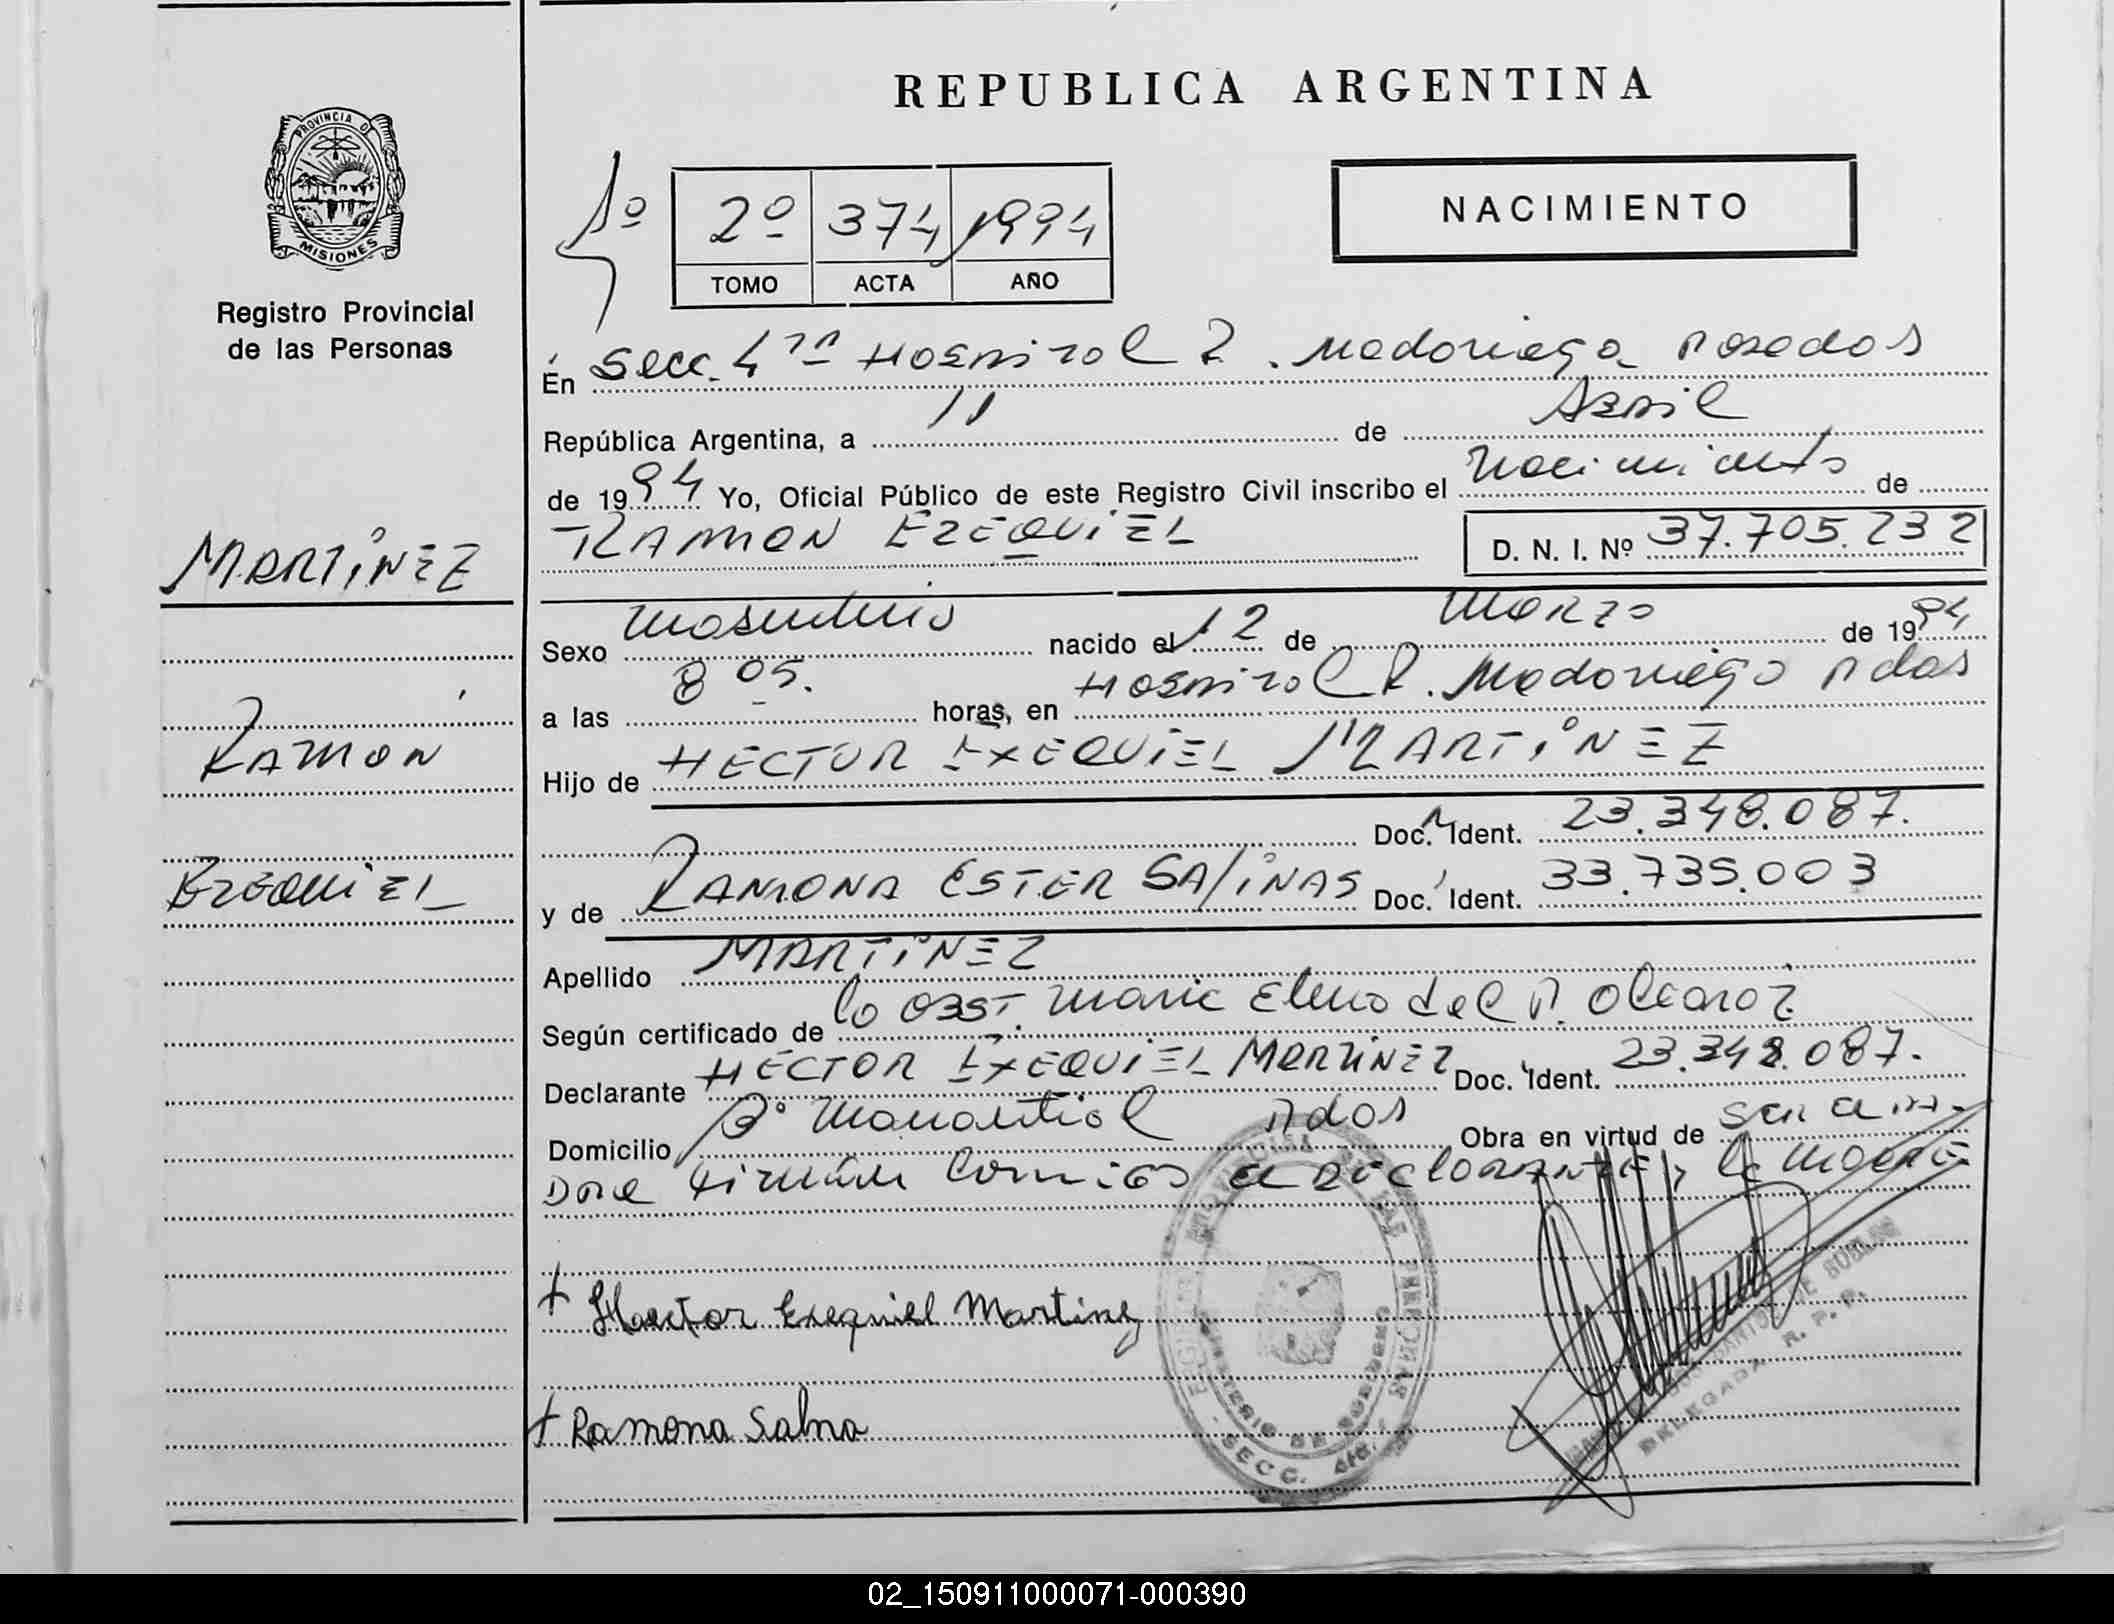 REPUBLICA ARGENTINA
PROVINCIA DE
MISIONES
Registro Provincial
de las Personas
2º 374 1994
TOMO ACTA AÑO
NACIMIENTO
En Secc. 4ta Hospital R. Madariaga Posadas
República Argentina, a 11 de Abril
de 1994 Yo, Oficial Público de este Registro Civil inscribo el Nacimiento de
RAMON EZEQUIEL D. N. I. Nº 37.705.232
MARTINEZ
RAMON
EZEQUIEL
Sexo Masculino nacido el 12 de Marzo de 1994
a las 8 05. horas, en Hospital R. Madariaga Pdas
Hijo de HECTOR EXEQUIEL MARTINEZ
Doc. Ident. 23.348.087.
y de RAMONA ESTER SALINAS Doc. Ident. 33.735.003
Apellido MARTINEZ
Según certificado de la Obst. Maria Elena del P. Olcaroz
Declarante HECTOR EXEQUIEL MARTINEZ Doc. Ident. 23.348.087.
Domicilio Bº Manantial Pdas Obra en virtud de ser el pa-
dre firman conmigo el declarante y la madre
Hector Exequiel Martinez
Ramona Salina
SECC. 4ta.
DELEGADA R. P. P.
02_150911000071-000390